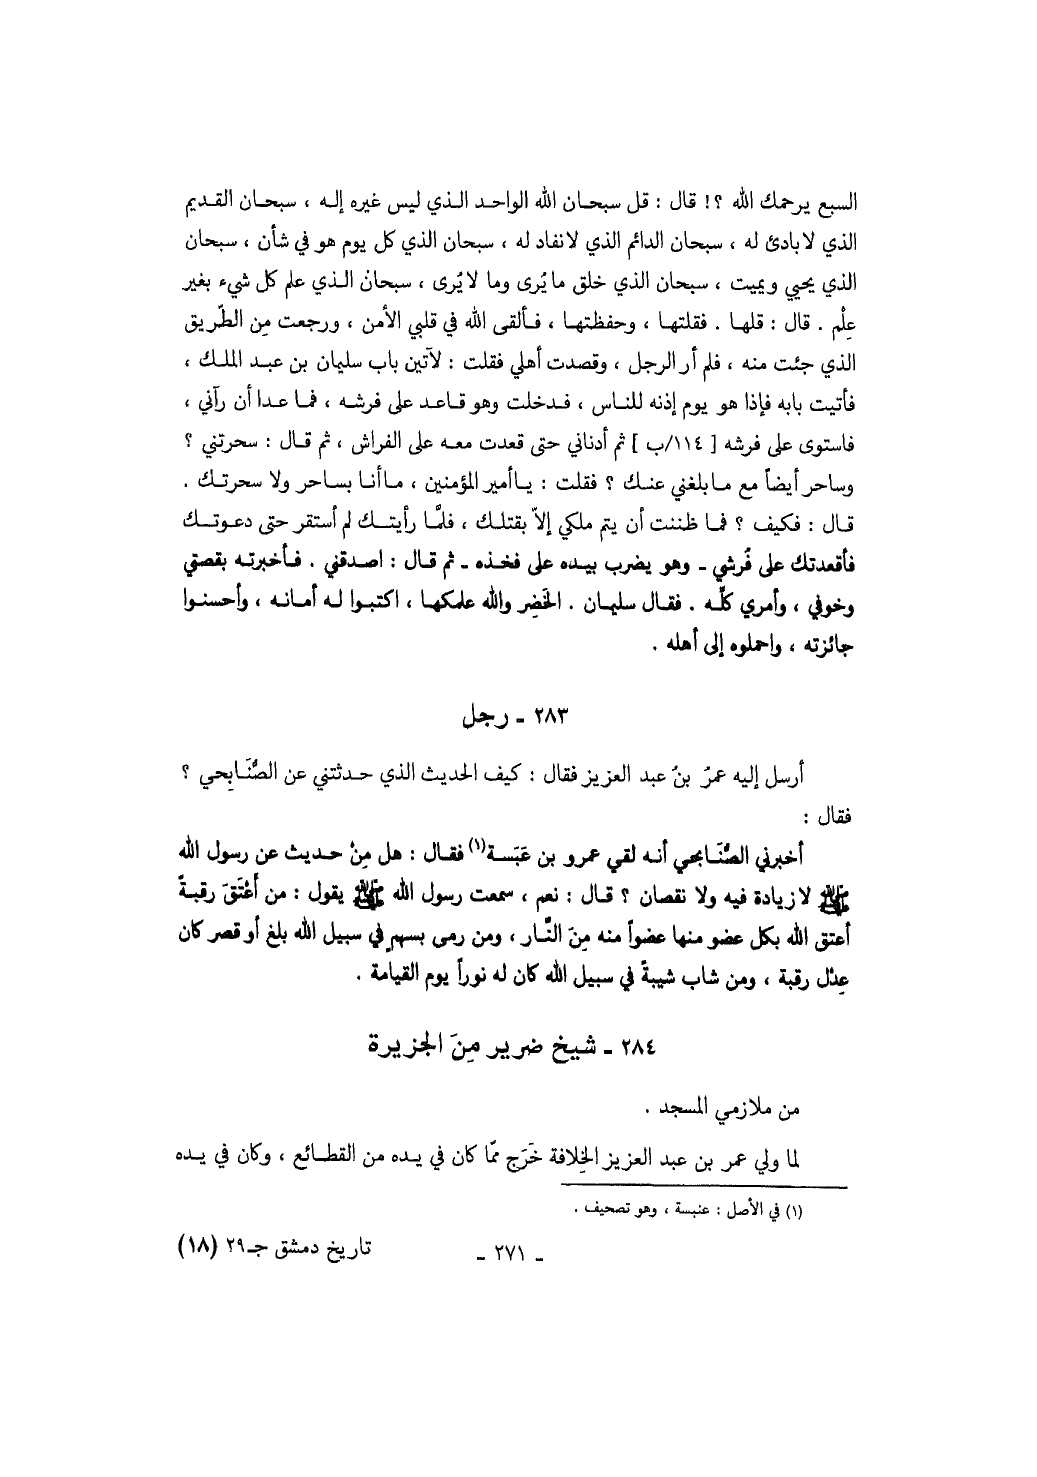 السبع يرحمك الله ؟! قال : قل سبحان الله الواحد الذي ليس غيره إله ، سبحان القديم
الذي لا بادئ له ، سبحان الدائم الذي لا نفاد له ، سبحان الذي كل يوم هو في شأن ، سبحان
الذي يحيي ويميت ، سبحان الذي خلق ما يُرى وما لا يُرى ، سبحان الذي علم كل شيء بغير
عِلْم . قال : قلها . فقلتها ، وحفظتها ، فألقى الله في قلبي الأمن ، ورجعت مِن الطّريق
الذي جئت منه ، فلم أر الرجل ، وقصدت أهلي فقلت : لآتين باب سليمان بن عبد الملك ،
فأتيت بابه فإذا هو يوم إذنه للناس ، فدخلت وهو قاعد على فرشه ، فما عدا أن رآني ،
فاستوى على فرشه [ ١١٤/ب ] ثم أدناني حتى قعدت معه على الفراش ، ثم قال : سحرتني ؟
وساحر أيضاً مع ما بلغني عنك ؟ فقلت : يا أمير المؤمنين ، ما أنا بساحر ولا سحرتك .
قال : فكيف ؟ فما ظننت أن يتم ملكي إلاّ بقتلك ، فلمَّا رأيتك لم أستقر حتى دعوتك
فأقعدتك على فُرشي ـ وهو يضرب بيده على فخذه ـ ثم قال : اصدقني . فأخبرته بقصتي
وخوفي ، وأمري كلّه . فقال سليمان . الخَضِر والله علمكها ، اكتبوا له أمانه ، وأحسنوا
جائزته ، واحملوه إلى أهله .
٢٨٣ ـ رجل
أرسل إليه عمرُ بنُ عبد العزيز فقال : كيف الحديث الذي حدثتني عن الصُّنَابِحي ؟
فقال :
أخبرني الصُّنَابحي أنه لقي عمرو بن عَبَسة(١) فقال : هل مِنْ حديث عن رسول الله
ﷺ لا زيادة فيه ولا نقصان ؟ قال : نعم ، سمعت رسول الله ﷺ يقول : من أَعْتَقَ رقبةً
أعتق الله بكل عضو منها عضواً منه مِنَ النَّار ، ومن رمى بسهمٍ في سبيل الله بلغ أو قصر كان
عِدْل رقبة ، ومن شاب شيبةً في سبيل الله كان له نوراً يوم القيامة .
٢٨٤ ـ شيخ ضرير مِنَ الجزيرة
من ملازمي المسجد .
لما ولي عمر بن عبد العزيز الخِلافة خَرَج ممّا كان في يده من القطائع ، وكان في يده
(١) في الأصل : عنبسة ، وهو تصحيف .
ـ ٢٧١ ـ
تاريخ دمشق جـ٢٩ (١٨)